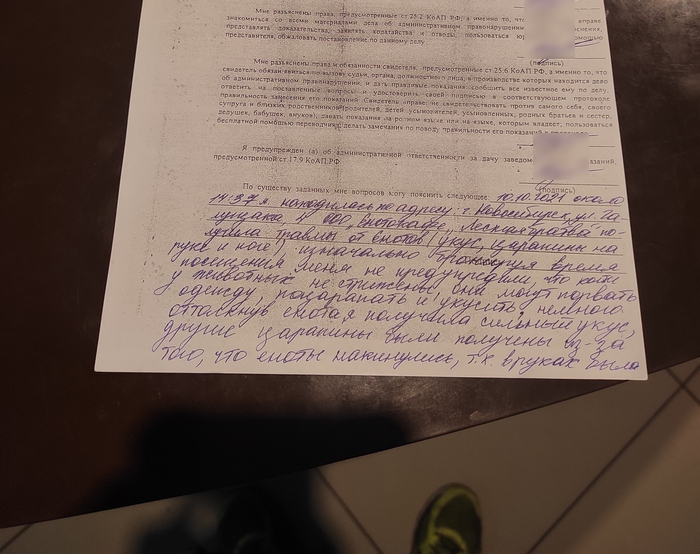 Мне разъяснены права, предусмотренные ст.25.2 КоАП РФ, а именно то, что вправе:
знакомиться со всеми материалами дела об административном правонарушении
представлять доказательства, заявлять ходатайства и отводы, пользоваться юр помощью
представителя, обжаловать постановление по данному делу
(подпись)
Мне разъяснены права и обязанности свидетеля, предусмотренные ст.25.6 КоАП РФ, а именно то, что
свидетель обязан явиться по вызову судьи, органа, должностного лица, в производстве которых находится дело
об административном правонарушении и дать правдивые показания: сообщить все известное ему по делу,
ответить на поставленные вопросы и удостоверить своей подписью в соответствующем протоколе
правильность занесения его показаний. Свидетель вправе: не свидетельствовать против самого себя, своего
супруга и близких родственников (родителей, детей, усыновителей, усыновленных, родных братьев и сестер,
дедушек, бабушек, внуков); давать показания на родном языке или на языке, которым владеет; пользоваться
бесплатной помощью переводчика; делать замечания по поводу правильности его показаний
(подпись)
Я предупрежден (а) об административной ответственности за дачу заведом азаний,
предусмотренной ст.17.9 КоАП РФ
(подпись)
По существу заданных мне вопросов могу пояснить следующее: 10.10.2021 около
14:37 я находилась по адресу: г. Новосибирск, ул. Га-
лущака, 4 ООО "Енотокафе", Лесная братва" по-
лучила травмы от енотов (укус, царапины на
руке и ноге), изначально бронируя время
посещения меня не предупредили что коли
у животных не стрижены они могут порвать
одежду, поцарапать и укусить, немного
оттолкнув енота я получила сильный укус,
другие царапины были получены из-за
того, что еноты накинулись, т.к. в руках была